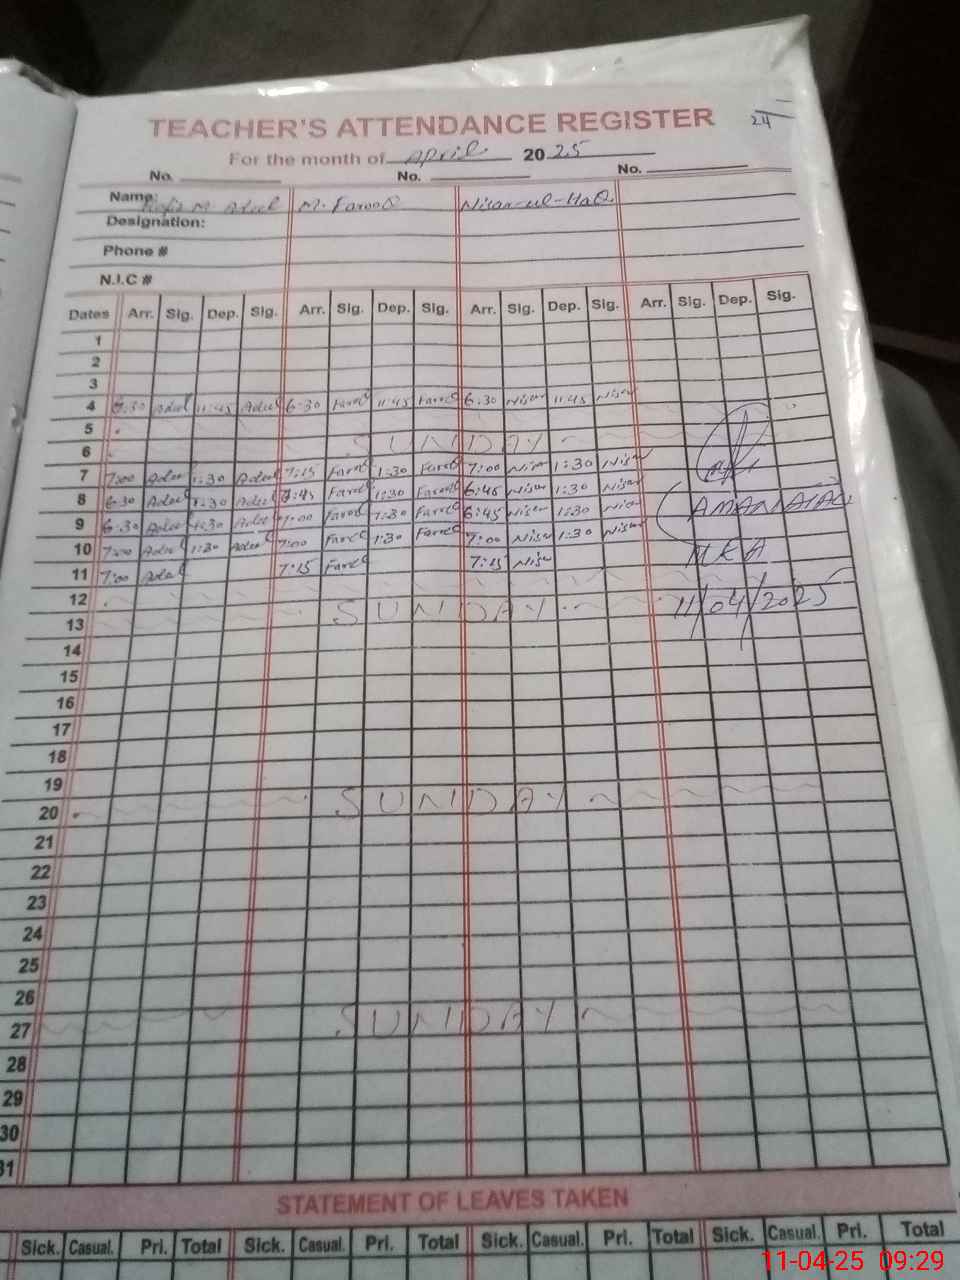 TEACHER'S ATTENDANCE REGISTER
24
For the month of April 2025
No. No. No.
Name: M. Adeel M. Farooq Nisar-ul-Haq
Designation:
Phone #
N.I.C #
Dates Arr. Sig. Dep. Sig. Arr. Sig. Dep. Sig. Arr. Sig. Dep. Sig. Arr. Sig. Dep. Sig.
1
2
3
4 6:30 Adeel 11:45 Adeel 6:30 Farooq 11:45 Farooq 6:30 Nisar 11:45 Nisar
5
6 SUNDAY
7 7:00 Adeel 1:30 Adeel 7:15 Farooq 1:30 Farooq 7:00 Nisar 1:30 Nisar
8 6:30 Adeel 1:30 Adeel 6:45 Farooq 1:30 Farooq 6:45 Nisar 1:30 Nisar
9 6:30 Adeel 1:30 Adeel 7:00 Farooq 1:30 Farooq 6:45 Nisar 1:30 Nisar
10 7:00 Adeel 1:30 Adeel 7:00 Farooq 1:30 Farooq 7:00 Nisar 1:30 Nisar
11 7:00 Adeel 7:15 Farooq 7:15 Nisar
MKA
12
13 SUNDAY 11/04/2025
14
15
16
17
18
19
20 SUNDAY
21
22
23
24
25
26
27 SUNDAY
28
29
30
31
STATEMENT OF LEAVES TAKEN
Sick. Casual. Pri. Total Sick. Casual. Pri. Total Sick. Casual. Pri. Total Sick. Casual. Pri. Total
11-04-25 09:29